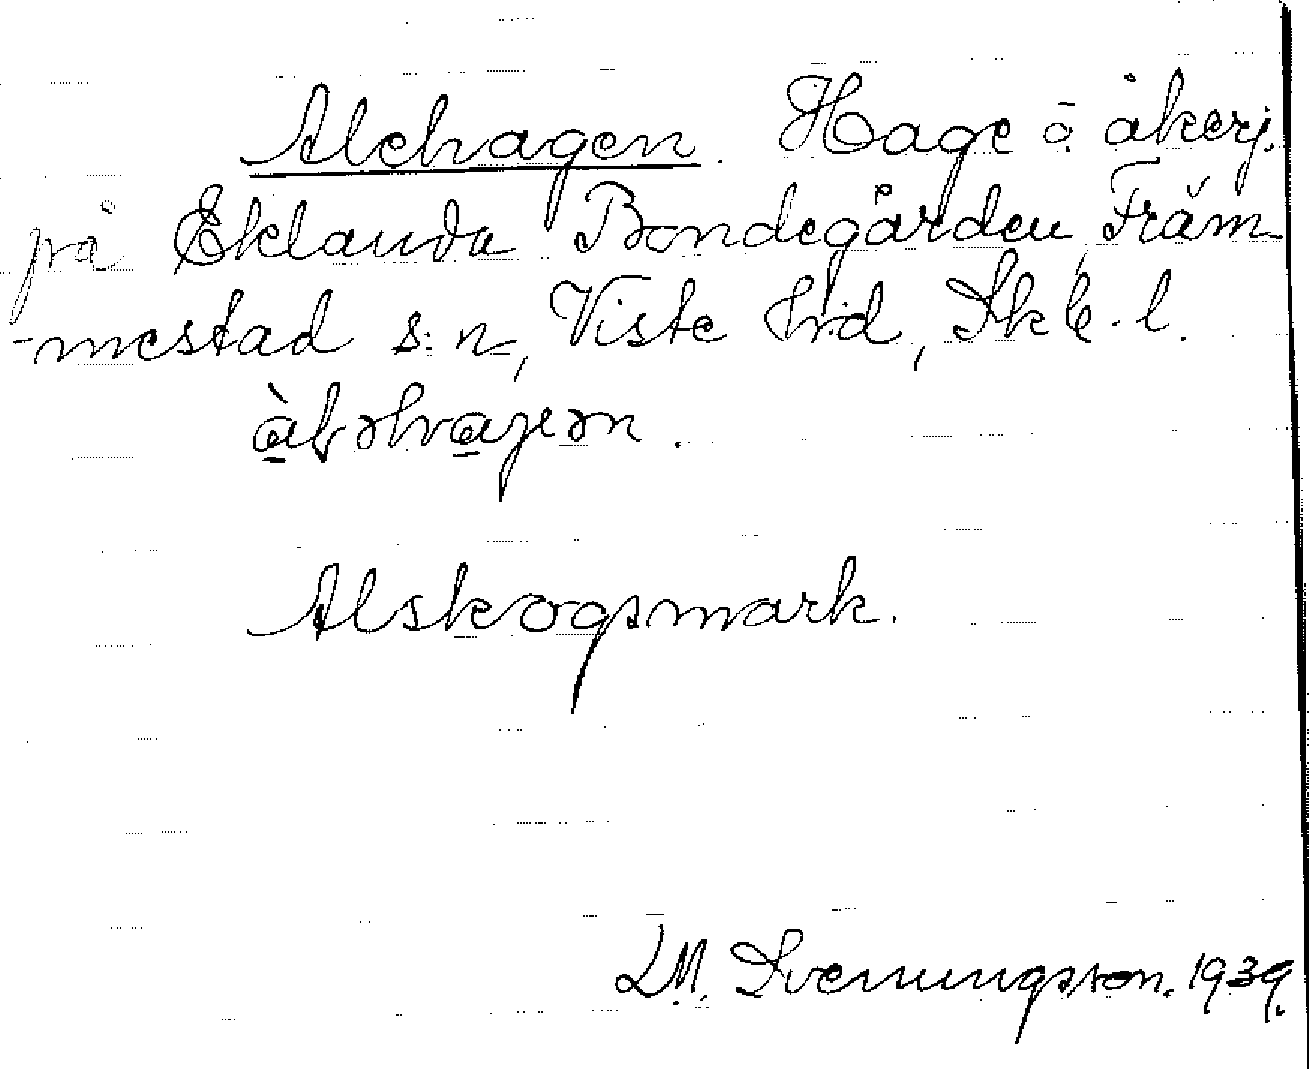 Alehagen. Hage o. åkerj.
på Eklanda Bondegården, Främ-
-mestad s:n, Viste hrd, Skb. l.
Alskogsmark.
L M. Svenungsson. 1939.